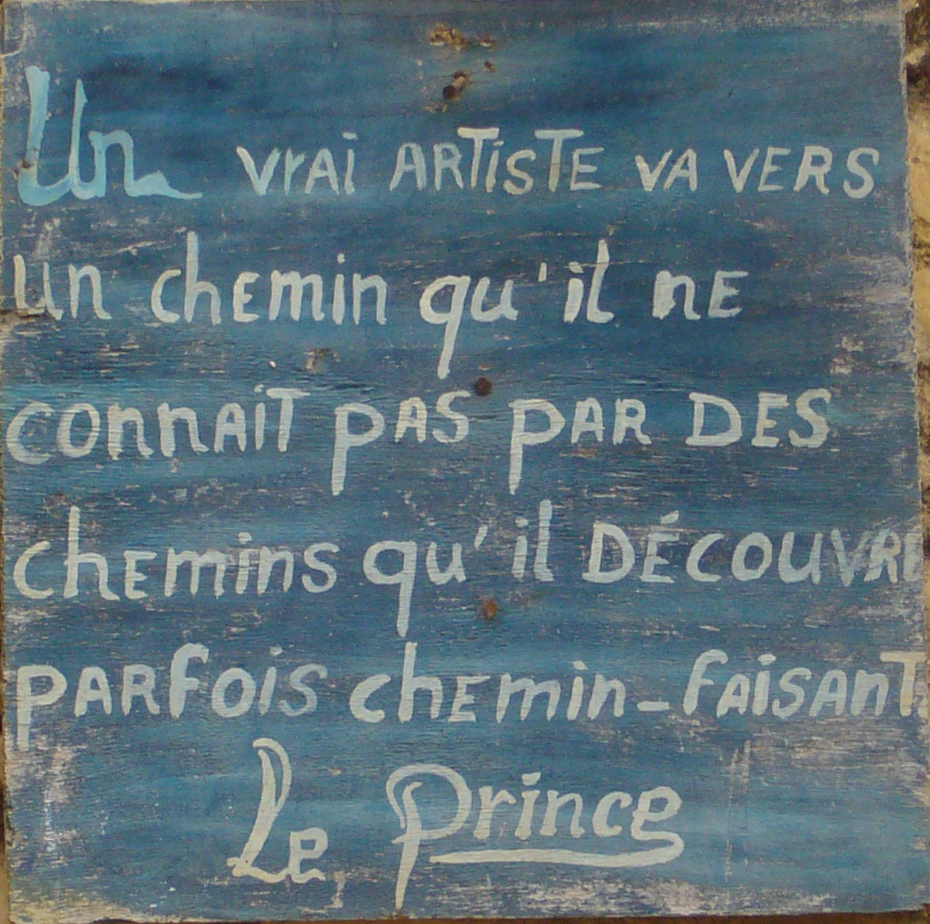 Un vrai ARTISTE VA VERS
un chemin qu'il ne
connaiT pas par DES
chemins qu'il DÉCOUVRE
parfois chemin-faisant.
Le Prince